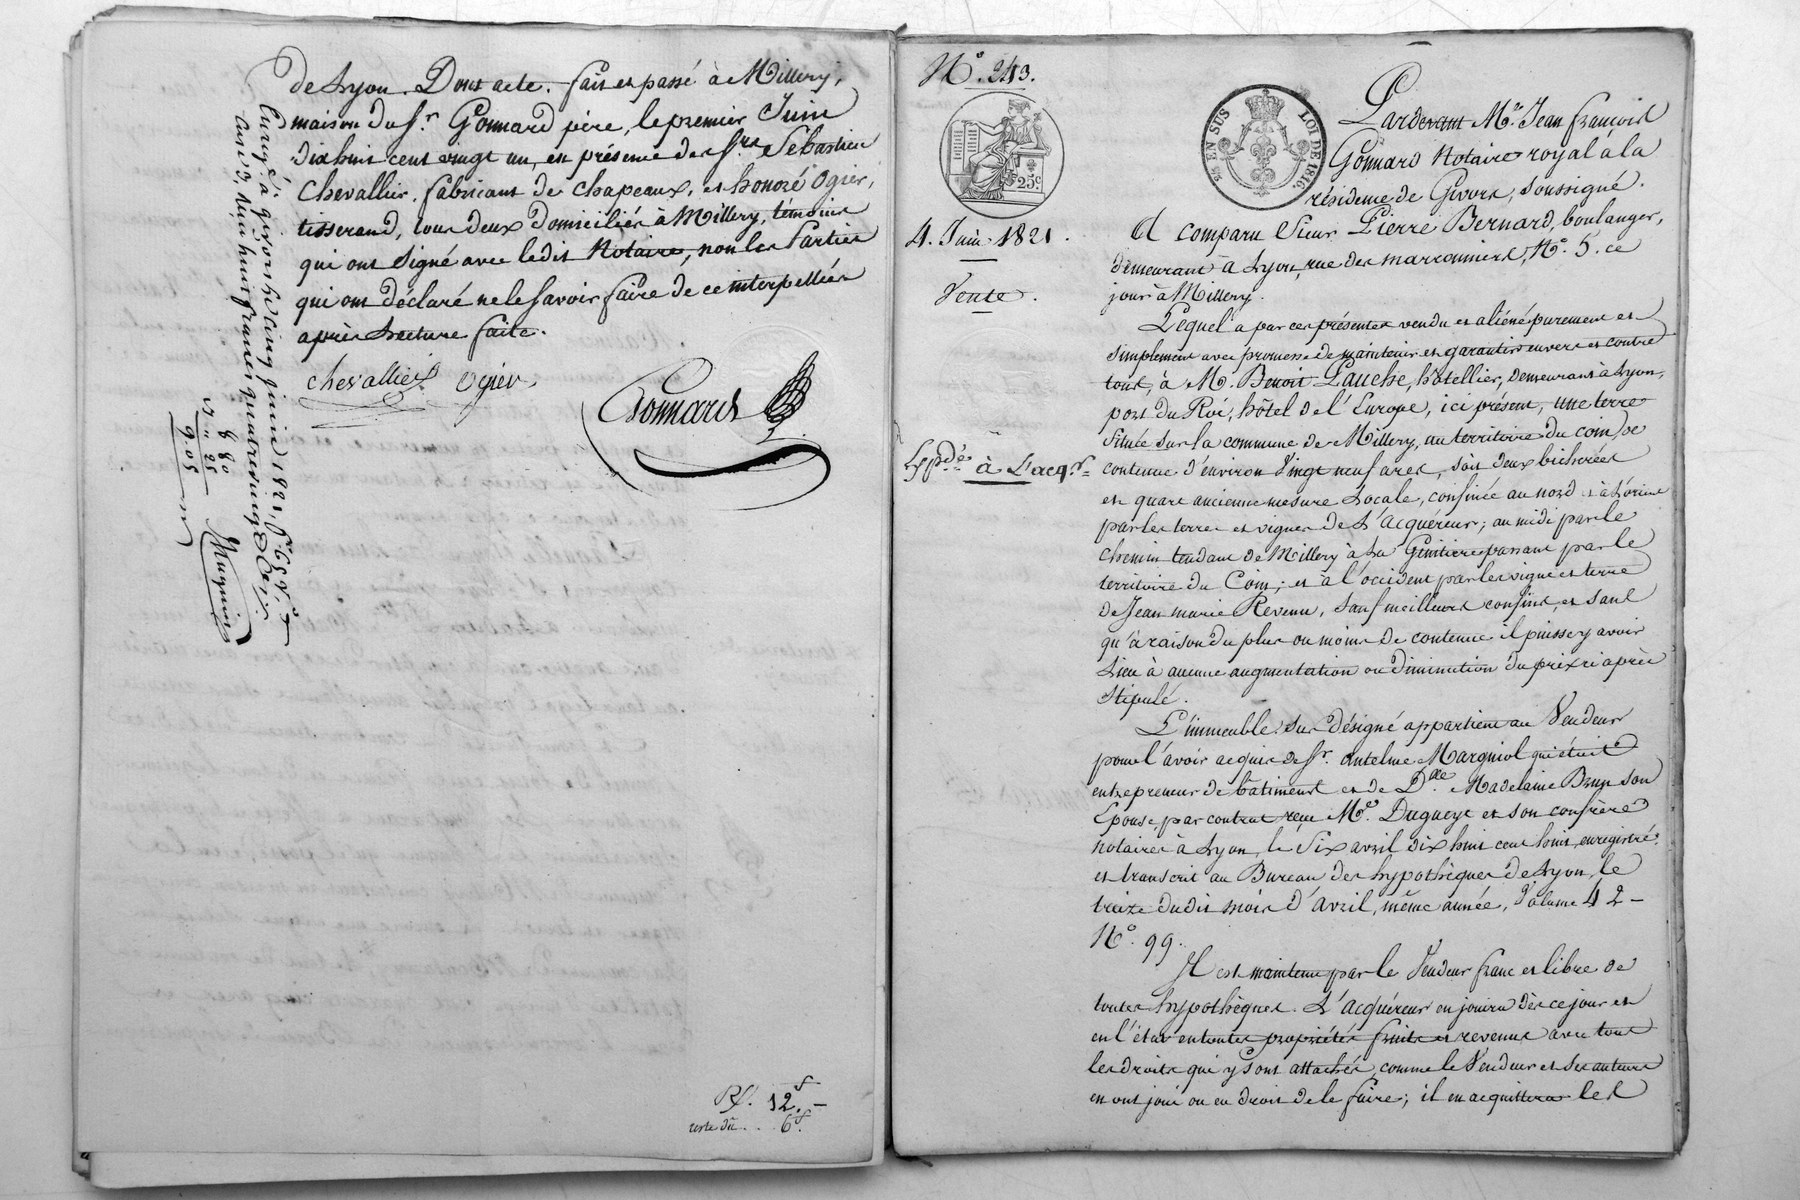 de Lyon. Dont acte. fait et passé à Millery,
maison du Sr. Gonnard père, le premier Juin
dix huit cent vingt un, en présence de Srs. Sébastien
Chevallier, fabricant de chapeaux, et honoré Ogier,
tisserand, tous deux domiciliés à Millery, témoins
qui ont signé avec ledit Notaire, non les Parties
qui ont déclaré ne le savoir faire de ce interpellées
après Lecture faite.
chevallier ogier.
Gonnard
Enregé. à givors le cinq juin 1821, fo. 65 vo.
huit francs quatre vingt
8 80
25
9.05
Rf. 12.f —
reste dû . . 6f.
No. 243.
25c.
EN SUS
LOI DE 1816.
4. Juin 1821.
Vente.
Expde. à L'acqr.
Pardevant Me. Jean françois
Gonnard Notaire royal à la
résidence de Givors, soussigné.
A comparu Sieur Pierre Bernard, boulanger,
demeurant à Lyon, rue des marronniers, No. 5. ce
jour à Millery.
Lequel a par ces présentes vendu et aliéné purement et
simplement avec promesse de maintenir et garantir envers et contre
tous, à M. Benoit Lauche, hôtellier, demeurant à Lyon,
port du Roi, hôtel de l'Europe, ici présent, une terre
située sur la commune de Millery, au territoire du Com, de
contenue d'environ Vingt neuf ares, soit deux bicherées
et quart ancienne mesure Locale, confinée au nord et à L'orient
par les terres et vignes de L'acquéreur; au midi par le
chemin tendant de Millery à La Ginitiere passant par le
territoire du Com; et à l'occident par les vigne et terre
de Jean marie Revenu, sauf meilleurs confins, et sans
qu'à raison du plus ou moins de contenue il puisse y avoir
Lieu à aucune augmentation ou diminution du prix ci après
stipulé.
L'immeuble sus désigné appartient au Vendeur
pour l'avoir acquis de Sr. Antelme Margniol qui était
entrepreneur de bâtiments et de Dlle. Madelaine Brun son
Epouse, par contrat reçu Me. Dugueyt et son confrère
notaires à Lyon, le Six avril dix huit cent huit, enregistré
et transcrit au Bureau des hypothèques de Lyon, le
treize dudit mois d'avril, même année, Volume 42 —
No. 99.
Il est maintenu par le Vendeur franc et libre de
toutes hypothèques. L'acquéreur en jouira dès ce jour et
en l'état en toutes propriétés fruits et revenus avec tous
les droits qui y sont attachés, comme le Vendeur et ses auteurs
en ont joui ou eu droit de le faire; il en acquittera les